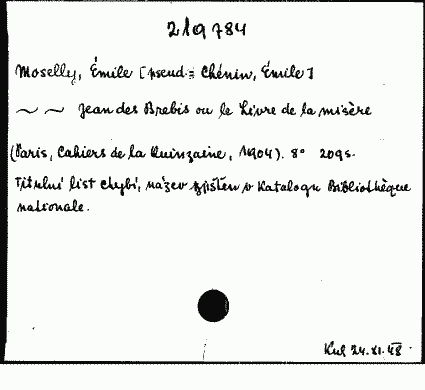 219784
Moselly, Émile [pseud = Chénin, Émile]
~ ~ Jean des Brebis ou le Livre de la misère
(Paris, Cahiers de la Quinzaine, 1904). 8° 209 s.
Titulní list chybí, název zjištěn v Katalogu Bibliothèque
nationale.
24.XI.48